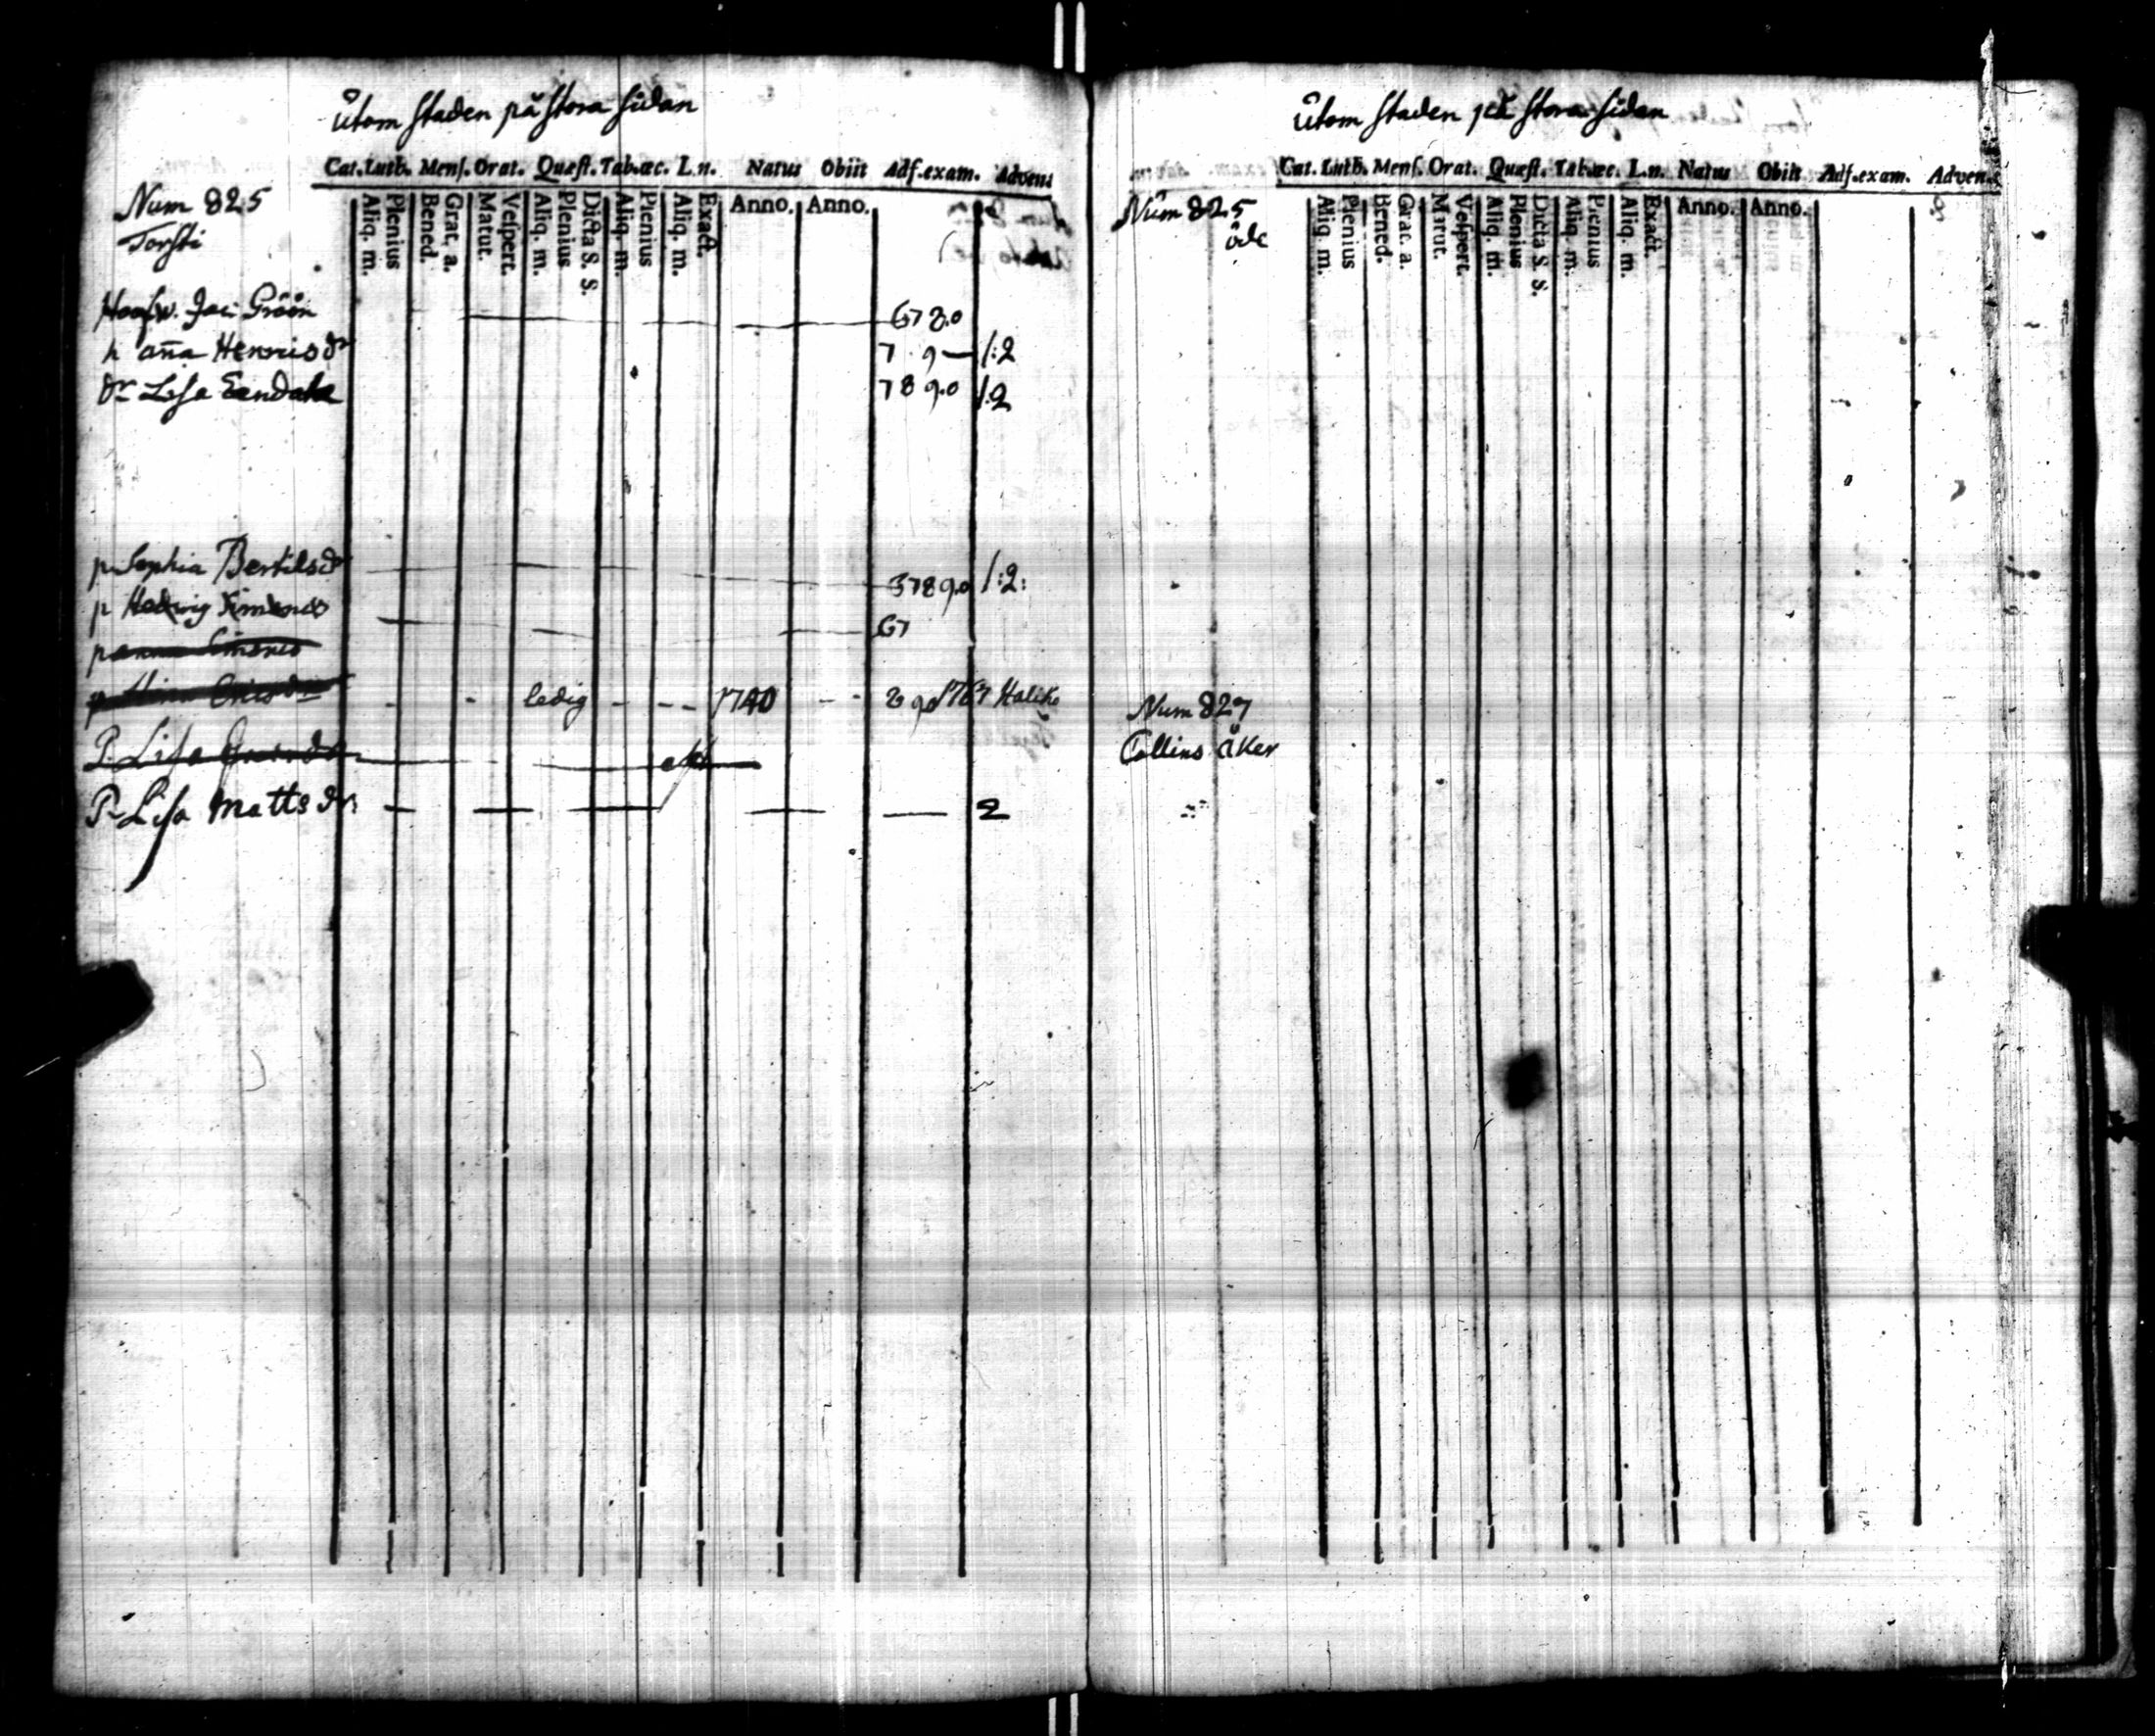 Utom staden på stora sidan
Cat. Luth. Mens. Orat. Quæst. Tab. œc. L. n. Natus Obiit Adf. exam. Adven.
Aliq. m. Plenius Bened. Grat. a. Matut. Vespert. Aliq. m. Plenius Dicta S. S. Aliq. m. Plenius Aliq. m. Exact. Anno. Anno.
Num 825
Torsti
Jac: Gröön 67 8.0
h aña Henrics dr 7 9 1:2
dr Lisa 7 8 9.0 1:2
p Sophia Bertils dr 5 7 8 9.0 1:2:
p Hedwig Simons 67
p anna Simons
p ledig 1740 1767 Haliko
P. Lisa
P. Lisa Matts dr. 2
Utom staden på stora sidan
Cat. Luth. Mens. Orat. Quæst. Tab. œc. L. n. Natus Obiit Adf. exam. Adven.
Aliq. m. Plenius Bened. Grac. a. Matut. Vespert. Aliq. m. Plenius Dicta S. S. Aliq. m. Plenius Aliq. m. Exact. Anno. Anno.
Num 825
öde
Num 827
Collins åker